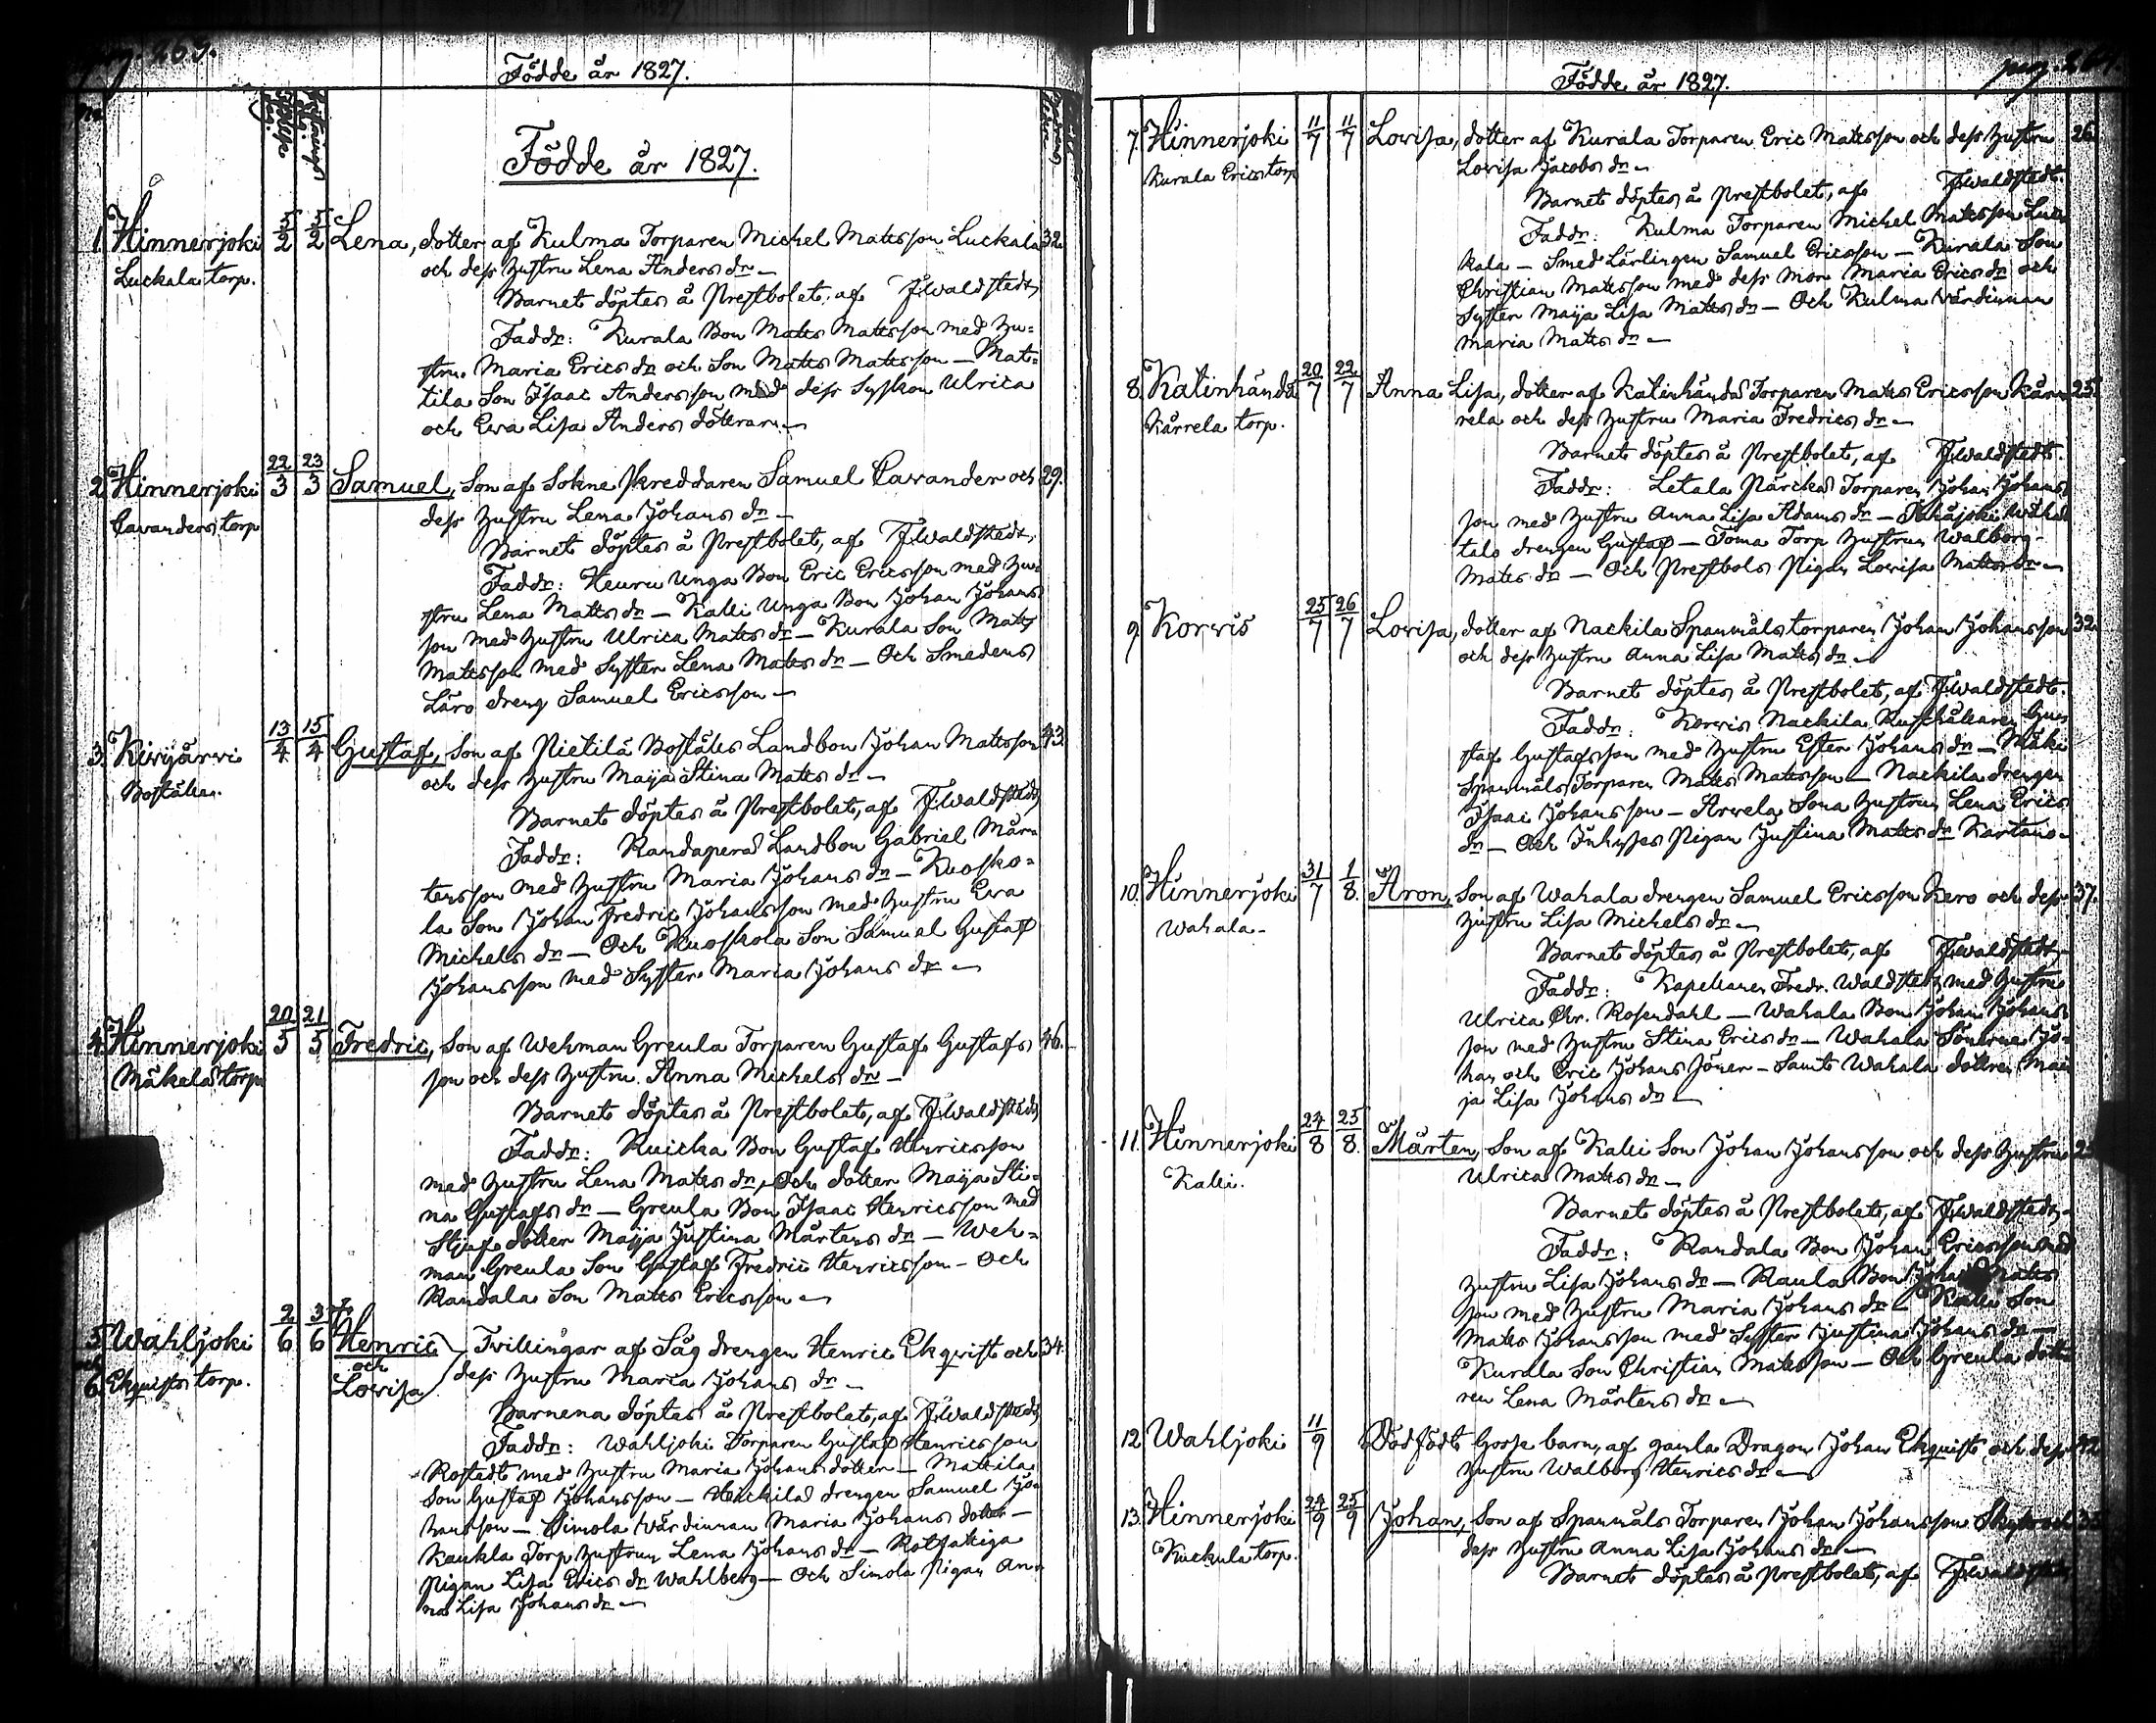 pag. 263.
Födde år 1827.
Födde år 1827.
1. Hinnerjoki 5/2 5/2 Lena, dotter af Kulma Torparen Michel Matsson Luckala 32.
Luckala torp. och dess hustru Lena Anders dr. —
Barnet döptes å Prestbolet, af F. Waldstedt,
Faddr: Kurala Bon Matts Mattsson med hu=
stru Maria Erics dr och Son Matts Mattsson — Mat=
tila Son Isaac Andersson med dess Syskon Ulrica
och Ewa Lisa Anders döttrar. —
2. Hinnerjoki 22/3 23/3 Samuel, Son af Sokne skreddaren Samuel Cavander och 29.
Cavanders torp dess hustru Lena Johans dr —
Barnet döptes å Prestbolet, af F. Waldstedt,
Faddr: Heuru Unga Bon Eric Ericsson med hu=
stru Lena Matts dr — Kalli Unga Bon Johan Johans
son med hustru Ulrica Matts dr — Kurala Son Matts
Matsson med Syster Lena Matts dr — Och Smedens
Läro dreng Samuel Ericsson —
3. Kivijärvi 13/4 15/4 Gustaf, Son af Pietilä Boställes Landbon Johan Mattsson 43.
Boställe. och dess hustru Maija Stina Matts dr —
Barnet döptes å Prestbolet, af F. Waldstedt,
Faddr: Randaperä Landbon Gabriel Mår=
tensson med hustru Maria Johans dr — Kuosko=
la Son Johan Fredric Johansson med hustru Ewa
Michels dr — Och Kuoskola Son Samuel Gustaf
Johansson med Syster Maria Johans dr —
4. Hinnerjoki 20/5 21/5 Fredric, Son af Wehman Greula Torparen Gustaf Gustafs 46.
Mäkelä torp son och dess hustru Anna Michels dr —
Barnet döptes å Prestbolet, af F. Waldstedt,
Faddr: Ruicka Bon Gustaf Henricsson
med hustru Lena Matts dr, Och dotter Maija Sti=
na Gustafs dr — Greula Bon Isaac Henricsson med
Stjuf dotter Maija Justina Mårtens dr — Weh=
man Greula Son Gustaf Fredric Henricsson — Och
Randala Son Matts Ericsson —
5. Wahljoki 2/6 3/6 Henric Twillingar af Såg drengen Henric Ekqvist och 34.
och och
6. Ekquists torp. Lovisa dess hustru Maria Johans dr —
Barnena döptes å Prestbolet, af F. Waldstedt,
Faddr: Wahljoki Torparen Gustaf Henricsson
Rostedt med hustru Maria Johans dotter — Mattila
Son Gustaf Johansson — Heickilä drengen Samuel Jo=
hansson — Simola Värdinnan Maria Johans dotter —
Kaukla Torp hustrun Lena Johans dr —
Pigan Lisa Erics dr Wahlberg — Och Simola Pigan An=
na Lisa Johans dr —
Födde år 1827.
pag. 264.
7. Hinnerjoki 11/7 11/7 Lovisa, dotter af Kurala Torparen Eric Matsson och dess hustru 26.
Kurala Erics torp Lovisa Jacobs dr —
Barnet döptes å Prestbolet, af F. Waldstedt.
Faddr: Kulma Torparen Michel Matsson Luc
kala — Smed Lärlingen Samuel Ericsson — Kurala Son
Christian Matsson med dess Mor Maria Erics dr och
Syster Maija Lisa Matts dr — Och Kulma Värdinnan
Maria Matts dr —
8. Katinhändä 20/7 22/7 Anna Lisa, dotter af Katinhändä Torparen Matts Ericsson Kär= 25.
Kärrela torp. rela och dess hustru Maria Fredrics dr —
Barnet döptes å Prestbolet, af F. Waldstedt.
Faddr: Letala Torparen Johan Johans
son med hustru Anna Lisa Adams dr —
talo drengen Gustaf — Toma Torp hustrun Walborg
Matts dr — Och Prestbols Pigan Lovisa Matts dr —
9. Korvis 25/7 26/7 Lovisa, dotter af Nackila Spanmåls torparen Johan Johansson 32.
och dess hustru Anna Lisa Matts dr —
Barnet döptes å Prestbolet, af F. Waldstedt.
Faddr: Korvis Nackila Rusthållaren Gu=
staf Gustafsson med hustru Ester Johans dr — Mäki
Spanmåls Torparen Matts Mattsson — Nackila drengen
Isaac Johansson — Arvela Sona hustrun Lena Erics
dr — Och Pigan Justina Matts dr Kartano —
10. Hinnerjoki 31/7 1/8. Aron, Son af Wahala drengen Samuel Ericsson Kero och dess 37.
Wahala — hustru Lisa Michels dr —
Barnet döptes å Prestbolet, af F. Waldstedt,
Faddr: Kapellanen Fredr. Waldstedt med hustru
Ulrica Chr. Rosendahl — Wahala Bon Johan Johans
son med hustru Stina Erics dr — Wahala Sönerne Jo=
han och Eric Johans söner — Samt Wahala dottren Mai
ja Lisa Johans dr —
11. Hinnerjoki 24/8 25/8. Mårten, Son af Kalli Son Johan Johansson och dess hustru
Kalli. Ulrica Matts dr —
Barnet döptes å Prestbolet, af F. Waldstedt,
Faddr: Randala Bon Johan Ericsson med
hustru Lisa Johans dr — Raula Bon Johan Matts
son med hustru Maria Johans dr — Kalli Son
Matts Johansson med Syster Justina Johans dr —
Kurala Son Christian Matsson — Och Greula dott
ren Lena Mårtens dr —
12 Wahljoki 11/9 Dödfödt Gosse barn, af gamla Dragon Johan Ekquist och dess 42
hustru Walborg Henrics dr —
13. Hinnerjoki 24/9 25/9 Johan, Son af Spanmåls Torparen Johan Johansson och
Kuckula torp. dess hustru Anna Lisa Johans dr —
Barnet döptes å Prestbolet, af F. Waldstedt